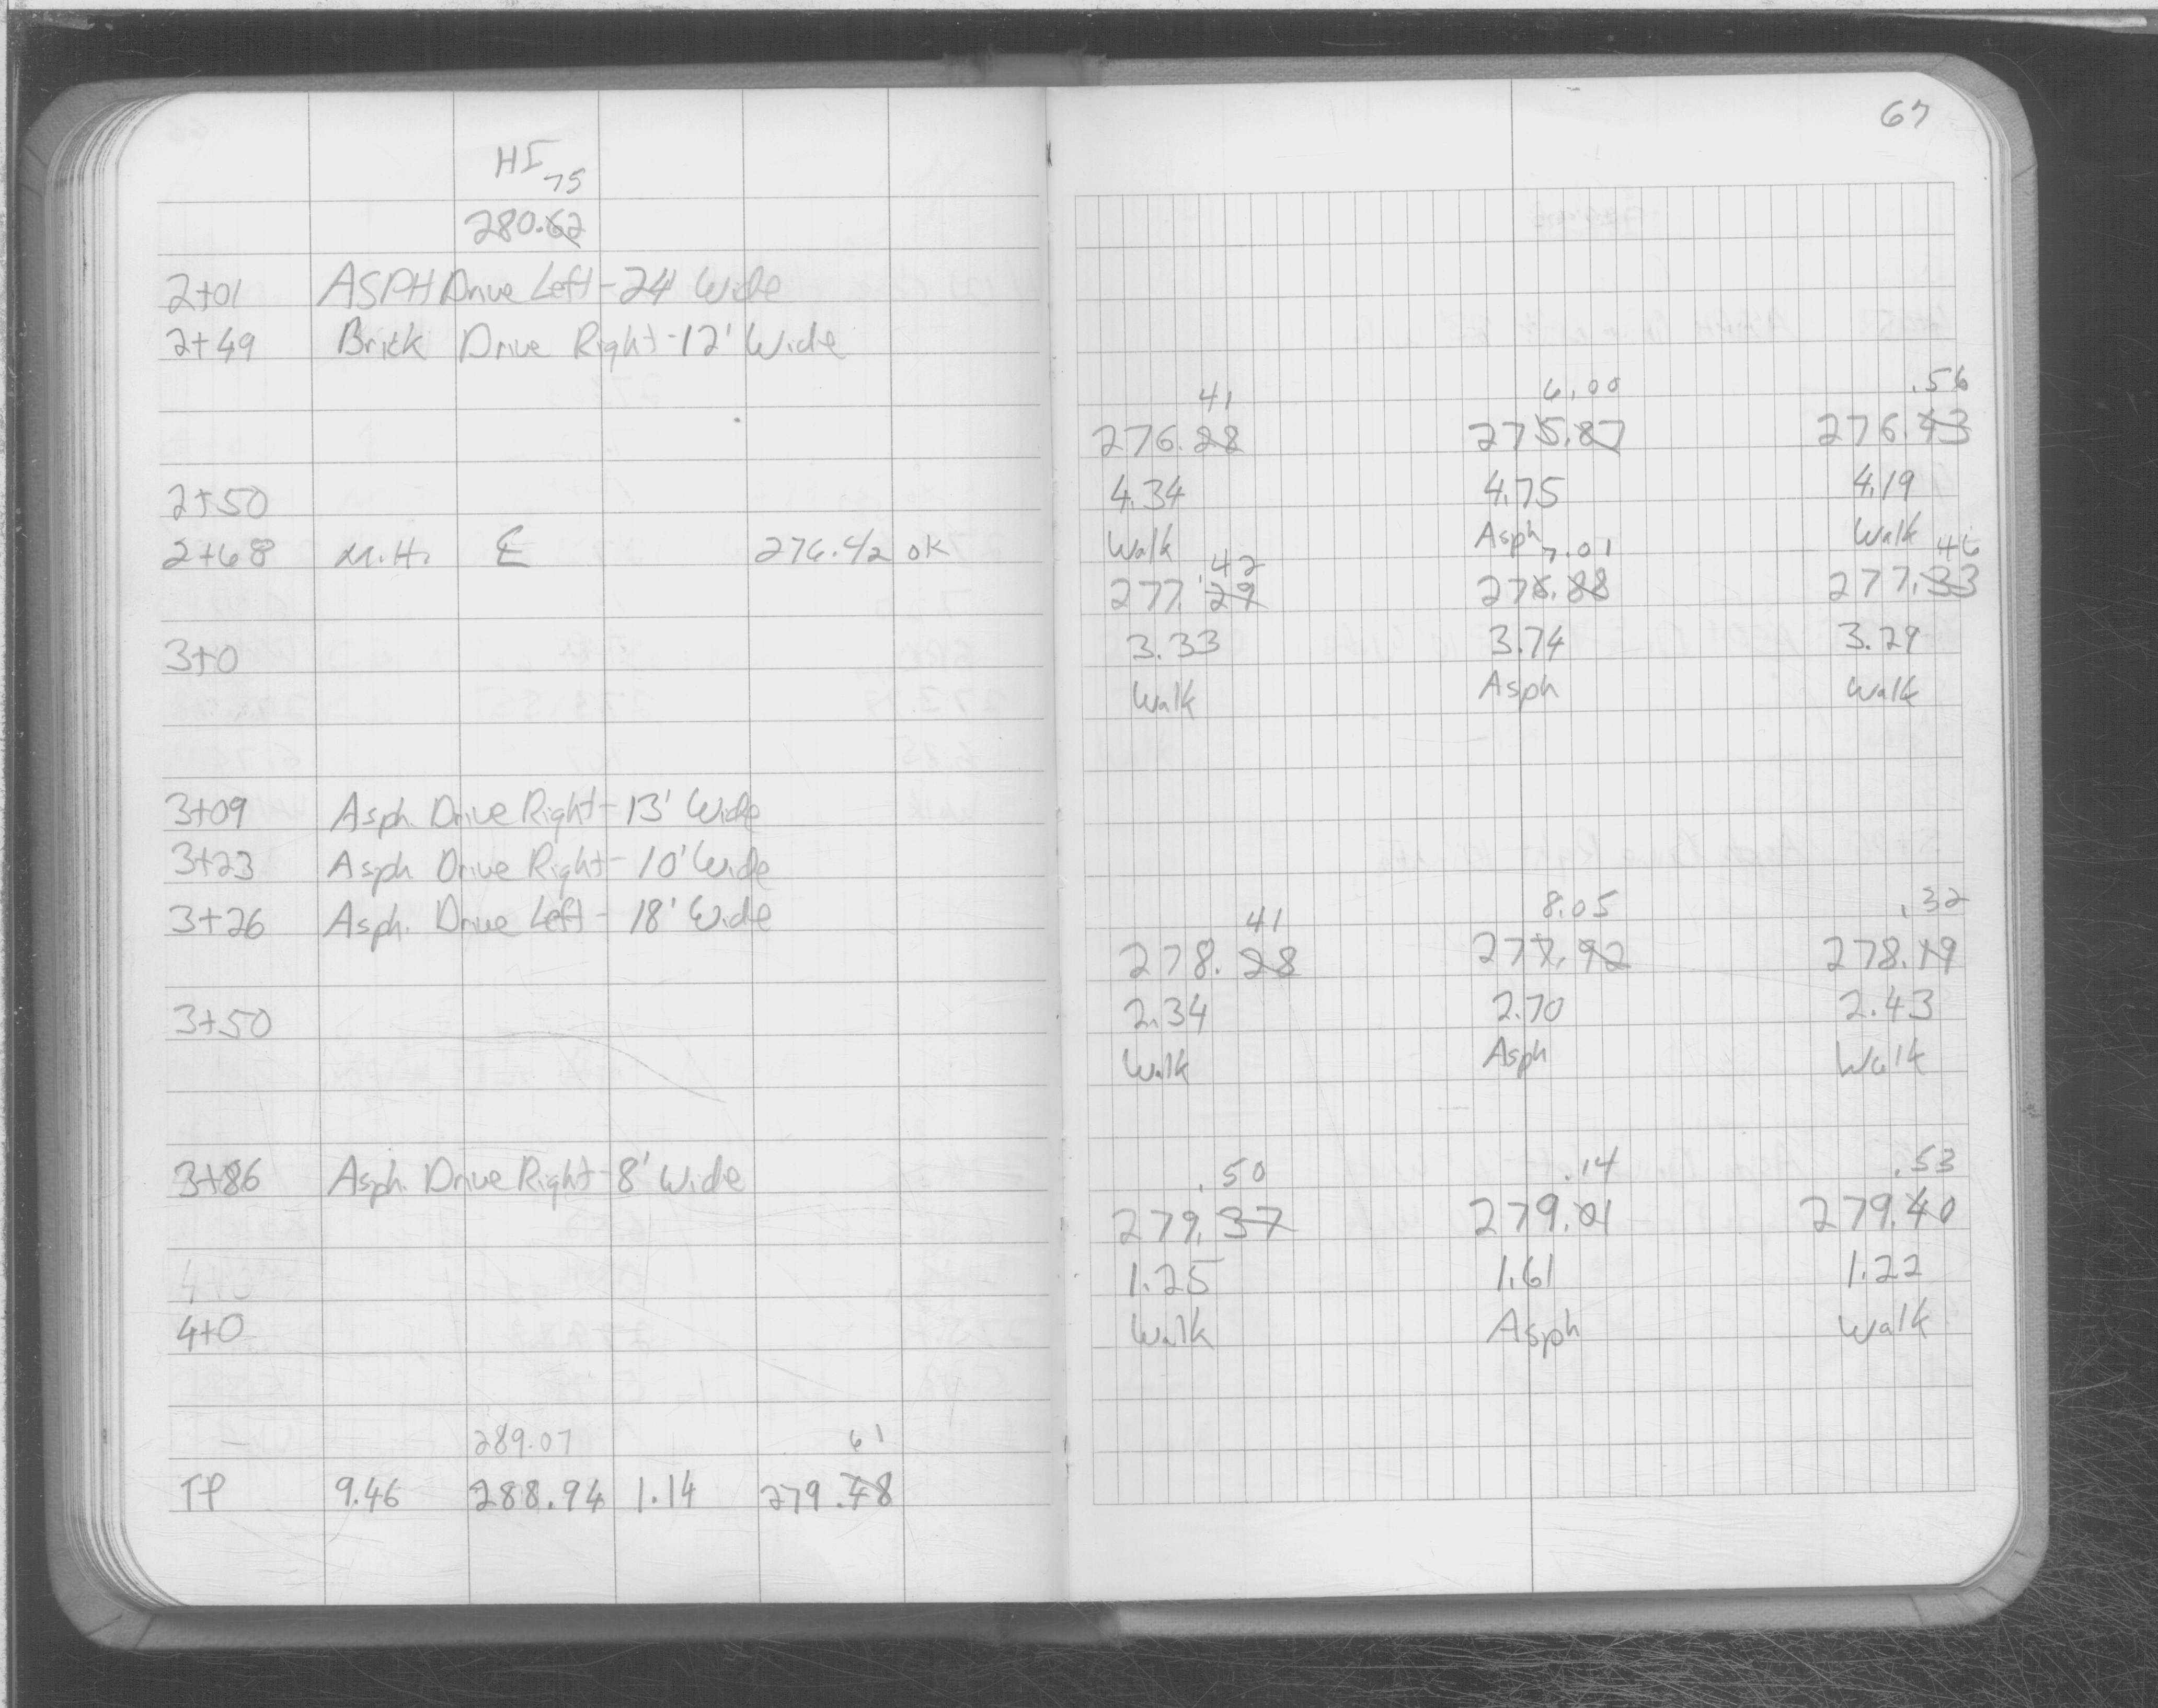 67
HI
75
280.62
2+01 ASPH Drive Left - 24' Wide
2+49 Brick Drive Right - 12' Wide
41 6.00 .56
276.28 275.87 276.43
2+50 4.34 4.75 4.19
Walk Asph Walk
2+68 M.H. ℄ 276.42 ok
.42 7.01 46
277.29 276.88 277.33
3+0 3.33 3.74 3.29
Walk Asph Walk
3+09 Asph. Drive Right - 13' Wide
3+23 Asph Drive Right - 10' Wide
3+26 Asph. Drive Left - 18' Wide
41 8.05 .32
278.28 277.92 278.19
3+50 2.34 2.70 2.43
Walk Asph Walk
3+86 Asph. Drive Right - 8' Wide
.50 .14 .53
279.37 279.01 279.40
4+0 1.25 1.61 1.22
4+0 Walk Asph Walk
289.07 61
TP 9.46 288.94 1.14 279.48